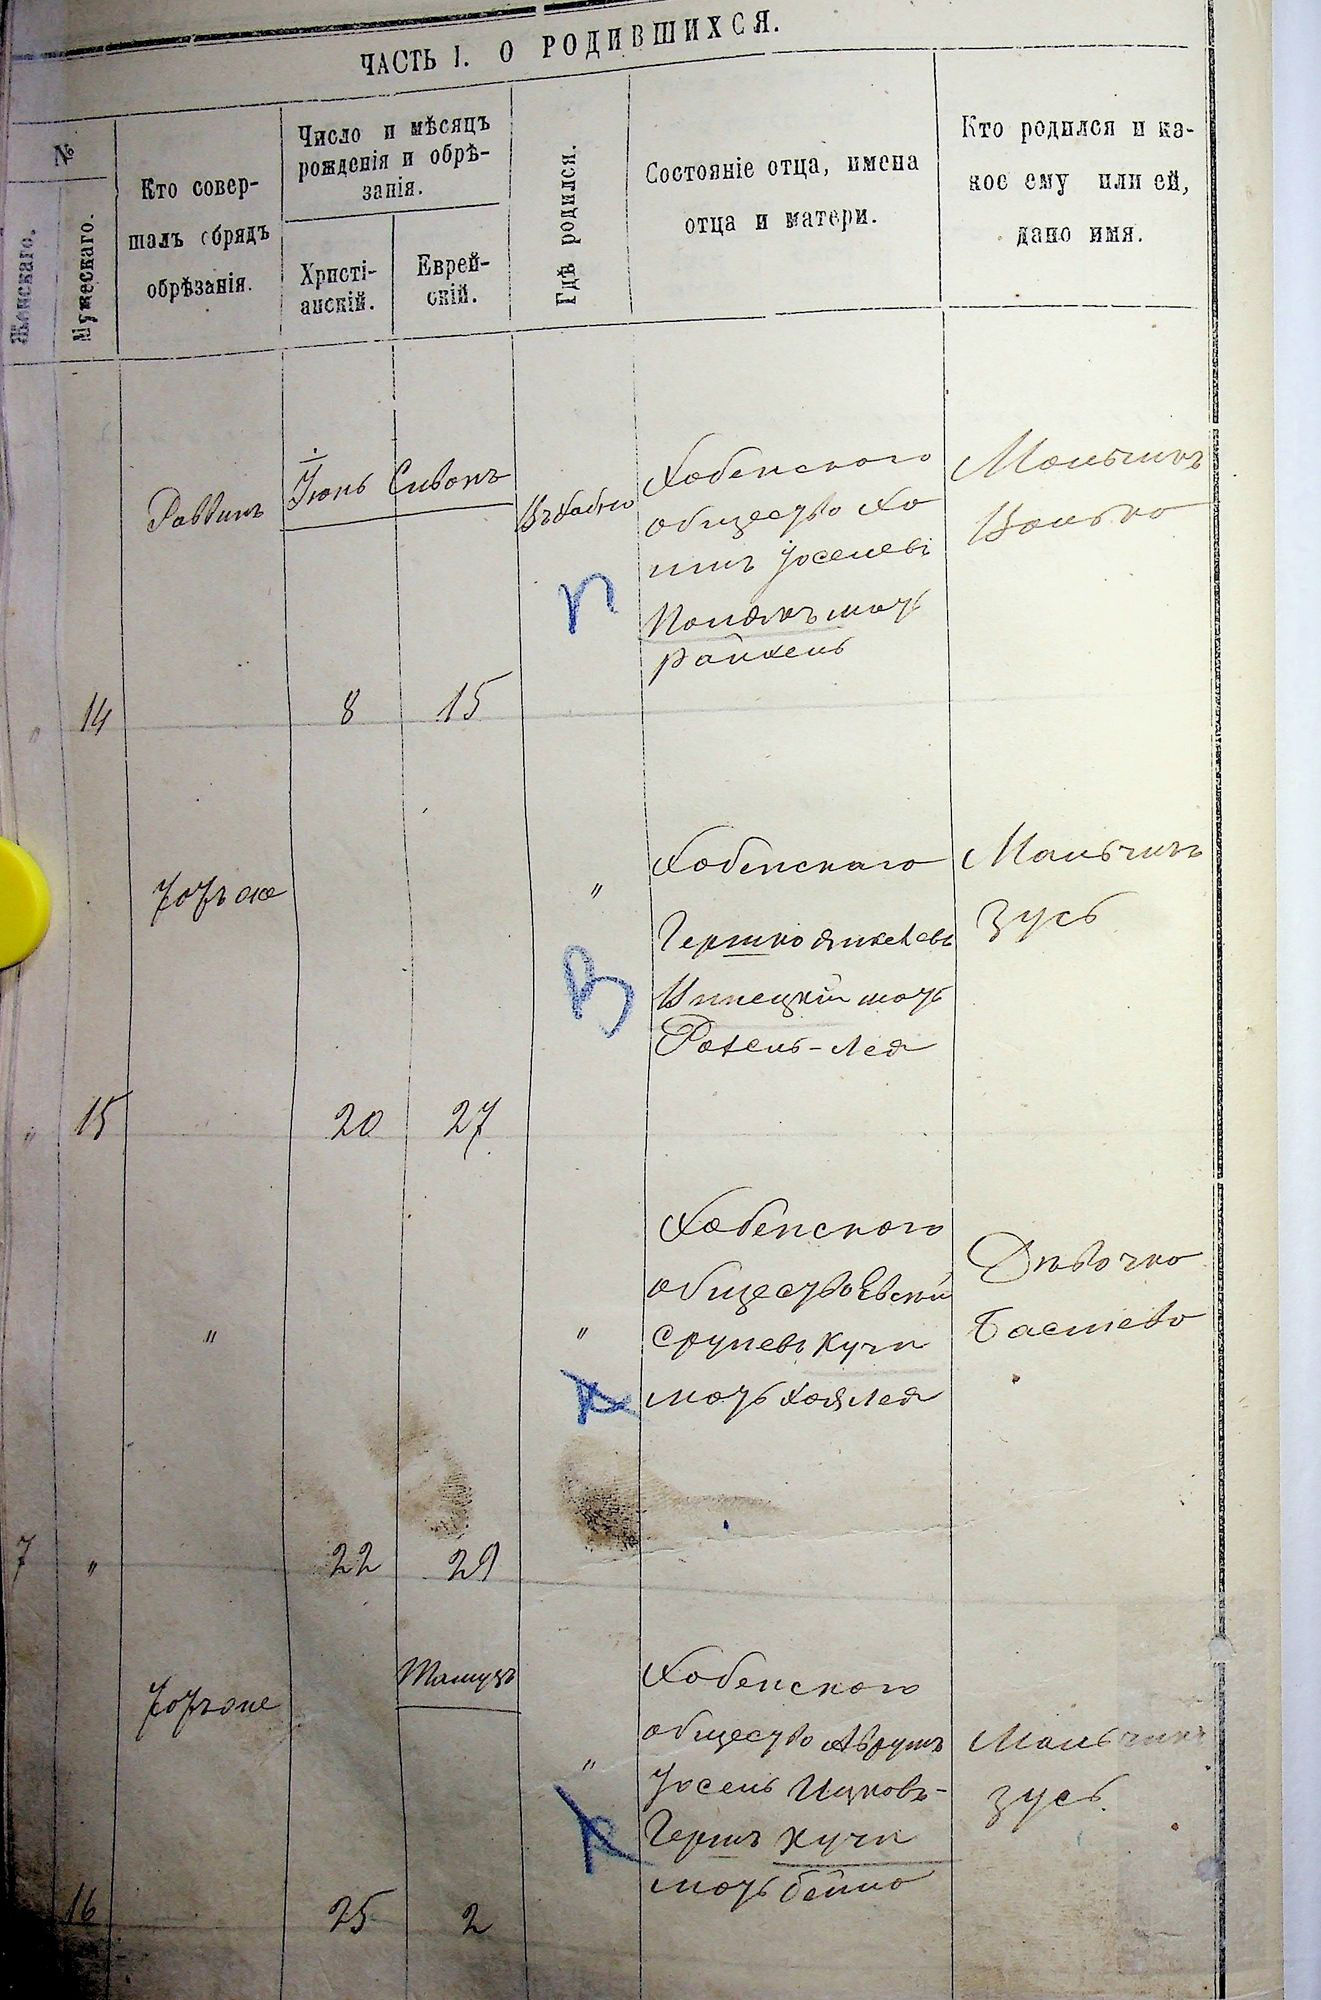 ЧАСТЬ I. О РОДИВШИХСЯ.
№
Женскаго.
Мужескаго.
Кто совер-
шалъ обрядъ
обрѣзанія.
Число и мѣсяцъ
рожденія и обрѣ-
занія.
Христі-
анскій.
Еврей-
скій.
Гдѣ родился.
Состояніе отца, имена
отца и матери.
Кто родился и ка-
кое ему или ей,
дано имя.
"
14
Раввинъ
Іюнь
8
Сиванъ
15
Въ Хабно
П
Хабенского
общества Ха
имъ Іоселевъ
мать
Райхель
Мальчикъ
"
15
Тотъ же
20
27
"
В
Хабенскаго
Гершко
мать
Рахель-Лея
Мальчикъ
Зусь
7
"
"
22
29
"
К
Хабенского
общества
Срулевъ Кучи
мать Хая Лея
Дѣвочка
Басшева
16
Тотъ же
25
Тамузъ
2
"
К
Хабенского
общества Аврумъ
Іосель Ицковъ-
Гершъ Кучи
мать Бейла
Мальчикъ
Зусь.